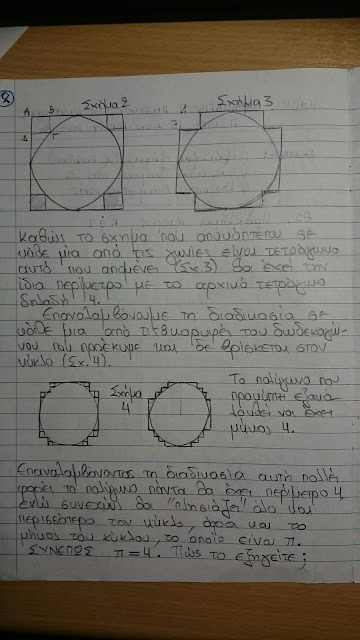 2
Σχήμα 2
Σχήμα 3
Α Β
Γ
Δ
Καθώς το σχήμα που αποκόπτεται σε
κάθε μία από τις γωνίες είναι τετράγωνο
αυτό που απομένει (Σχ.3) θα έχει την
ίδια περίμετρο με το αρχικό τετράγωνο
δηλαδή 4.
Επαναλαμβάνουμε τη διαδικασία σε
κάθε μια από τις 8 κορυφές του δωδεκαγώ-
νου που προέκυψε και δε βρίσκεται στον
κύκλο (Σχ.4).
Σχήμα
4
Το πολύγωνο που
προκύπτει εξακο-
λουθεί να έχει
μήκος 4.
Επαναλαμβάνοντας τη διαδικασία αυτή πολλές
φορές το πολύγωνο πάντα θα έχει περίμετρο 4
ενώ συνεχώς θα "πλησιάζει" όλο και
περισσότερο τον κύκλο, άρα και το
μήκος του κύκλου, το οποίο είναι π.
ΣΥΝΕΠΩΣ π=4. Πώς το εξηγείτε;